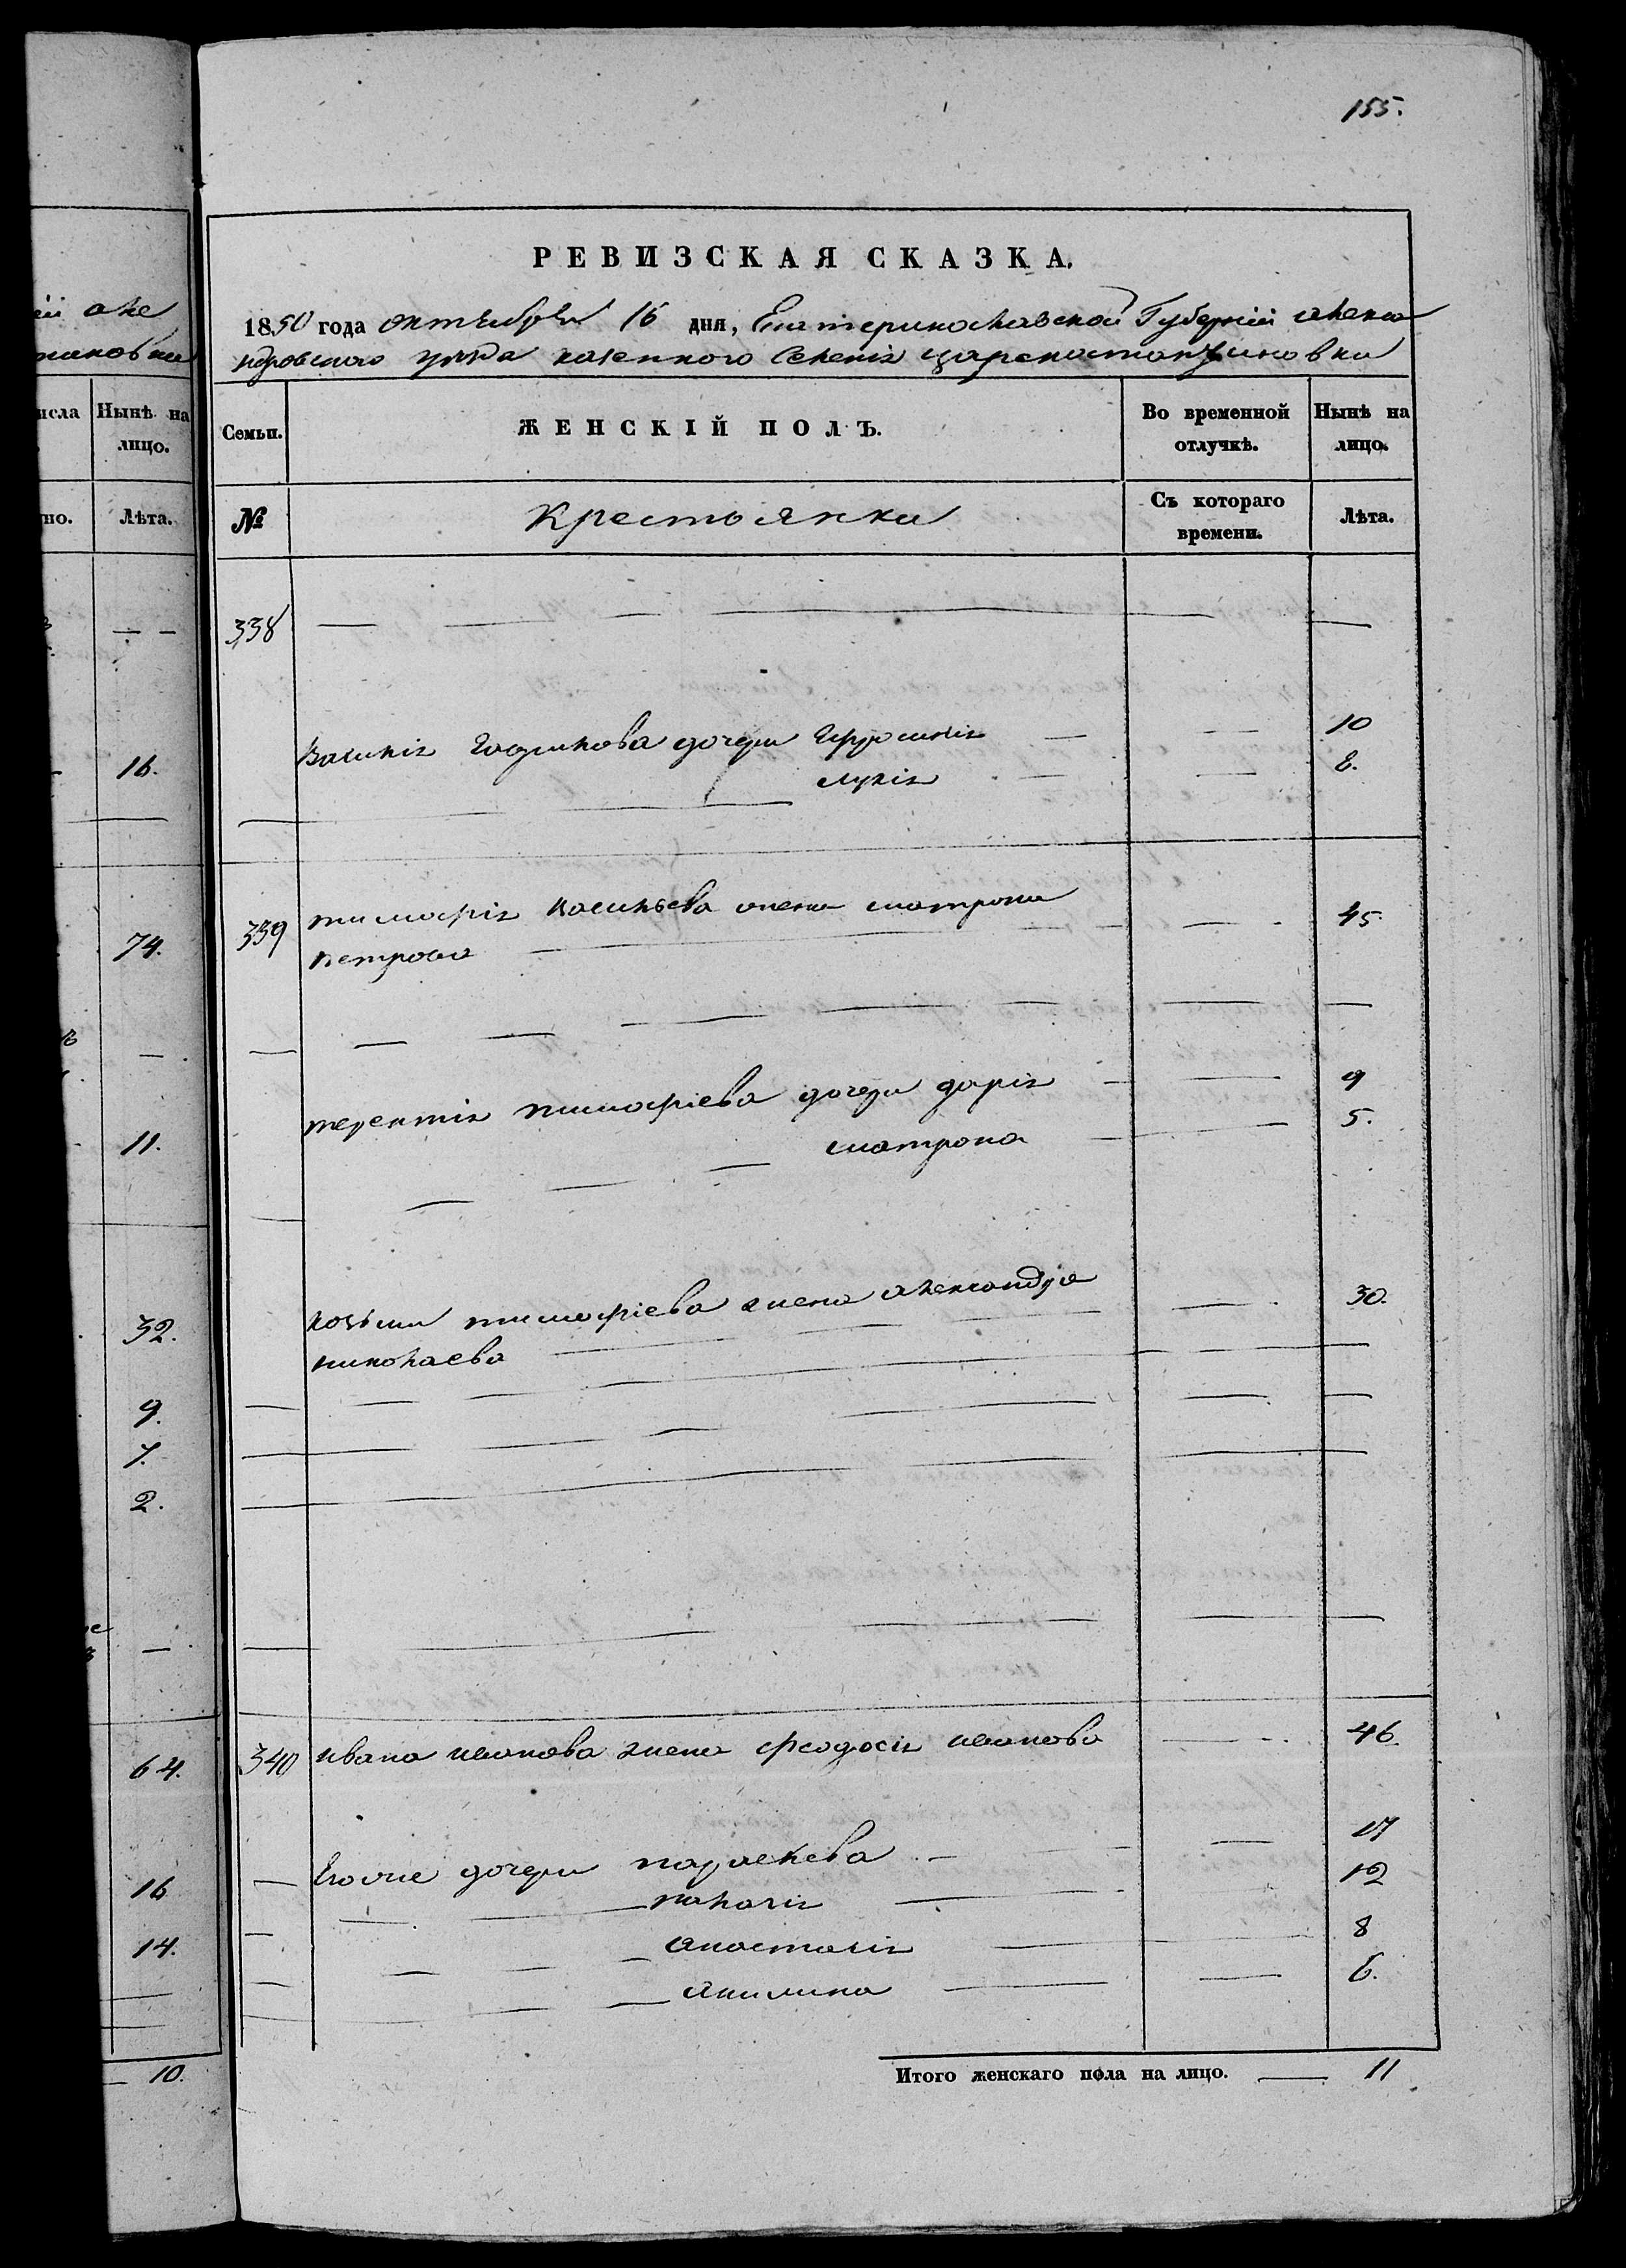 155.
ей але
тиновки
исла
Нынѣ на лицо.
но.
Лѣта.
16.
74.
11.
32.
9.
7.
2.
64.
16
14.
10.
РЕВИЗСКАЯ СКАЗКА.
1850 года октября 16 дня, Екатеринославской Губерніи алекса
ндровского уѣзда казенного Селенія царе константиновки
Семьи.
ЖЕНСКІЙ ПОЛЪ.
Во временной отлучкѣ.
Нынѣ на лицо.
№
Крестьянки
Съ котораго времени.
Лѣта.
338
Василія дочери 10
8.
339 тимофія Васильева жена матрона 45
петрова
терентія тимофіева дочери дарія 9
матрона 5.
козьми тимофіева жена александра 30.
николаева
340 ивана иванова жена феодосія иванова 46
Его же дочери параскева 17
12
анастасія 8
акилина 6.
Итого женскаго пола на лицо. 11